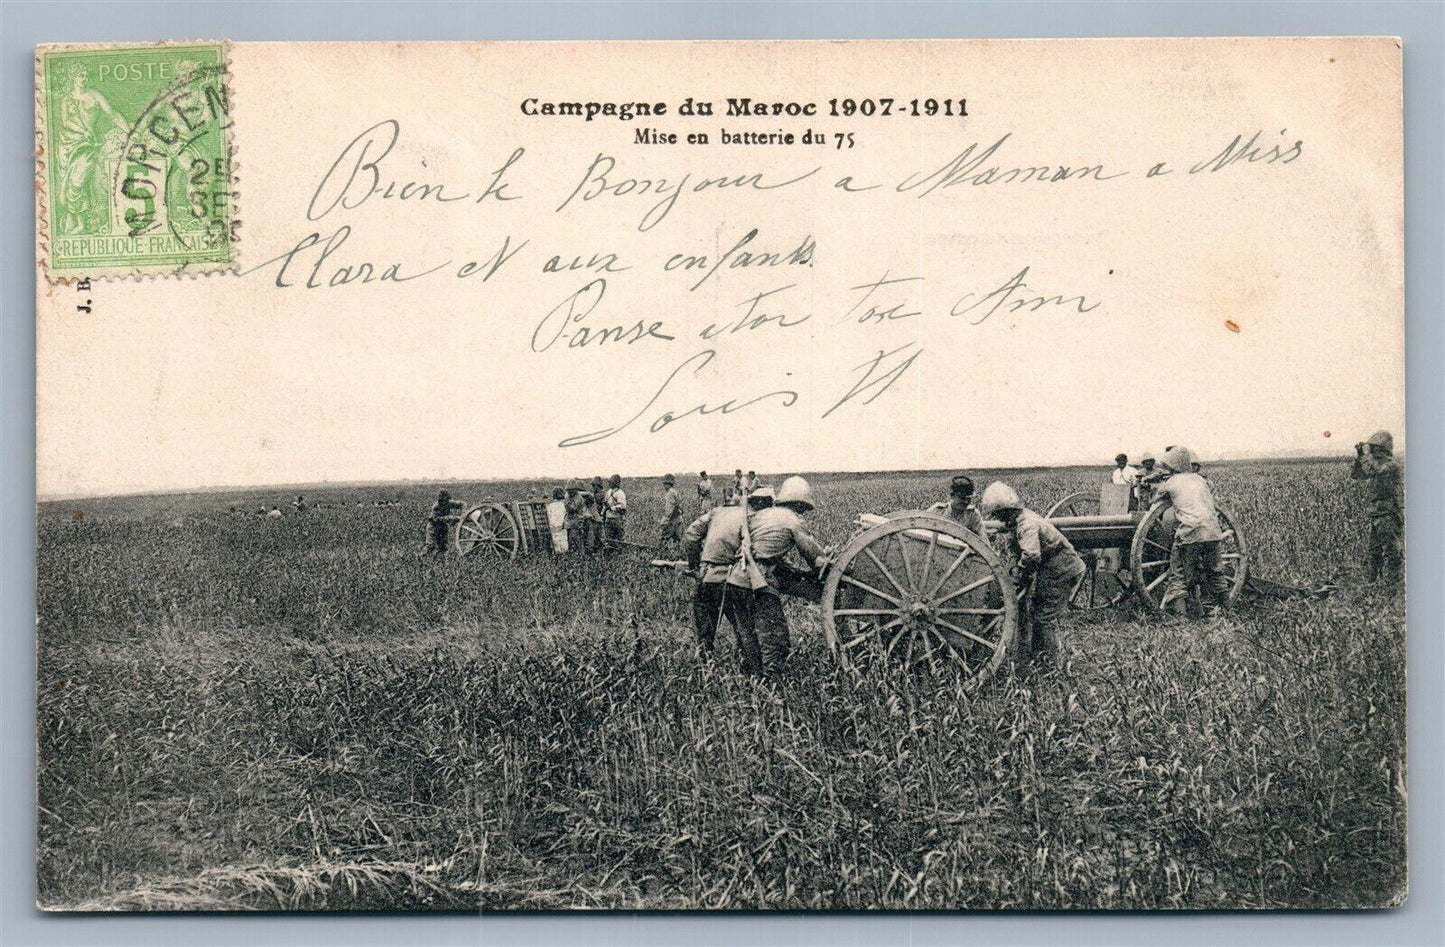 POSTE
5
REPUBLIQUE FRANÇAISE
MORCEN
25
SE
J. B.
Campagne du Maroc 1907-1911
Mise en batterie du 75
Bien le Bonjour a Maman a Miss
Clara et aux enfants
Panse a toi ton Ami
Louis